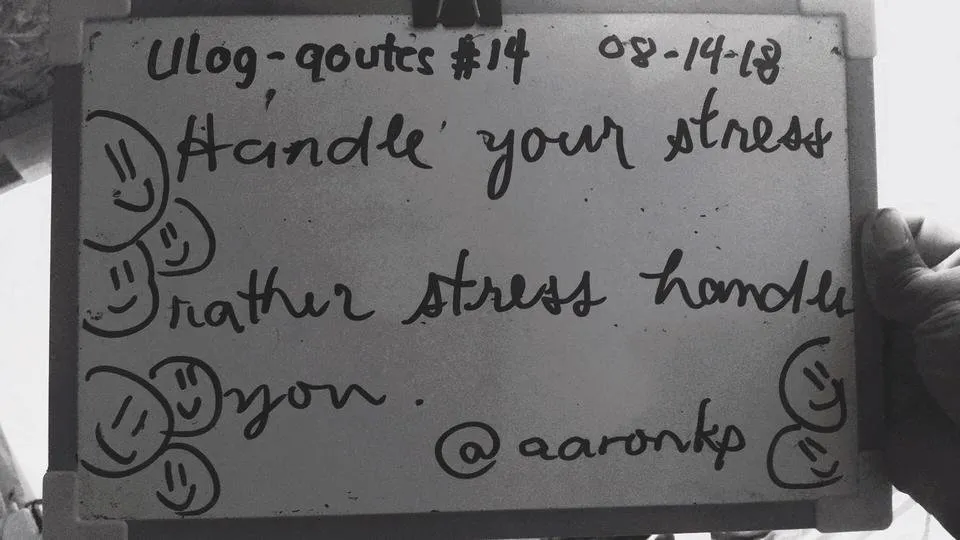 Ulog-qoutes #14 08-14-18
Handle your stress
rather stress handle
you.
@aaronkp